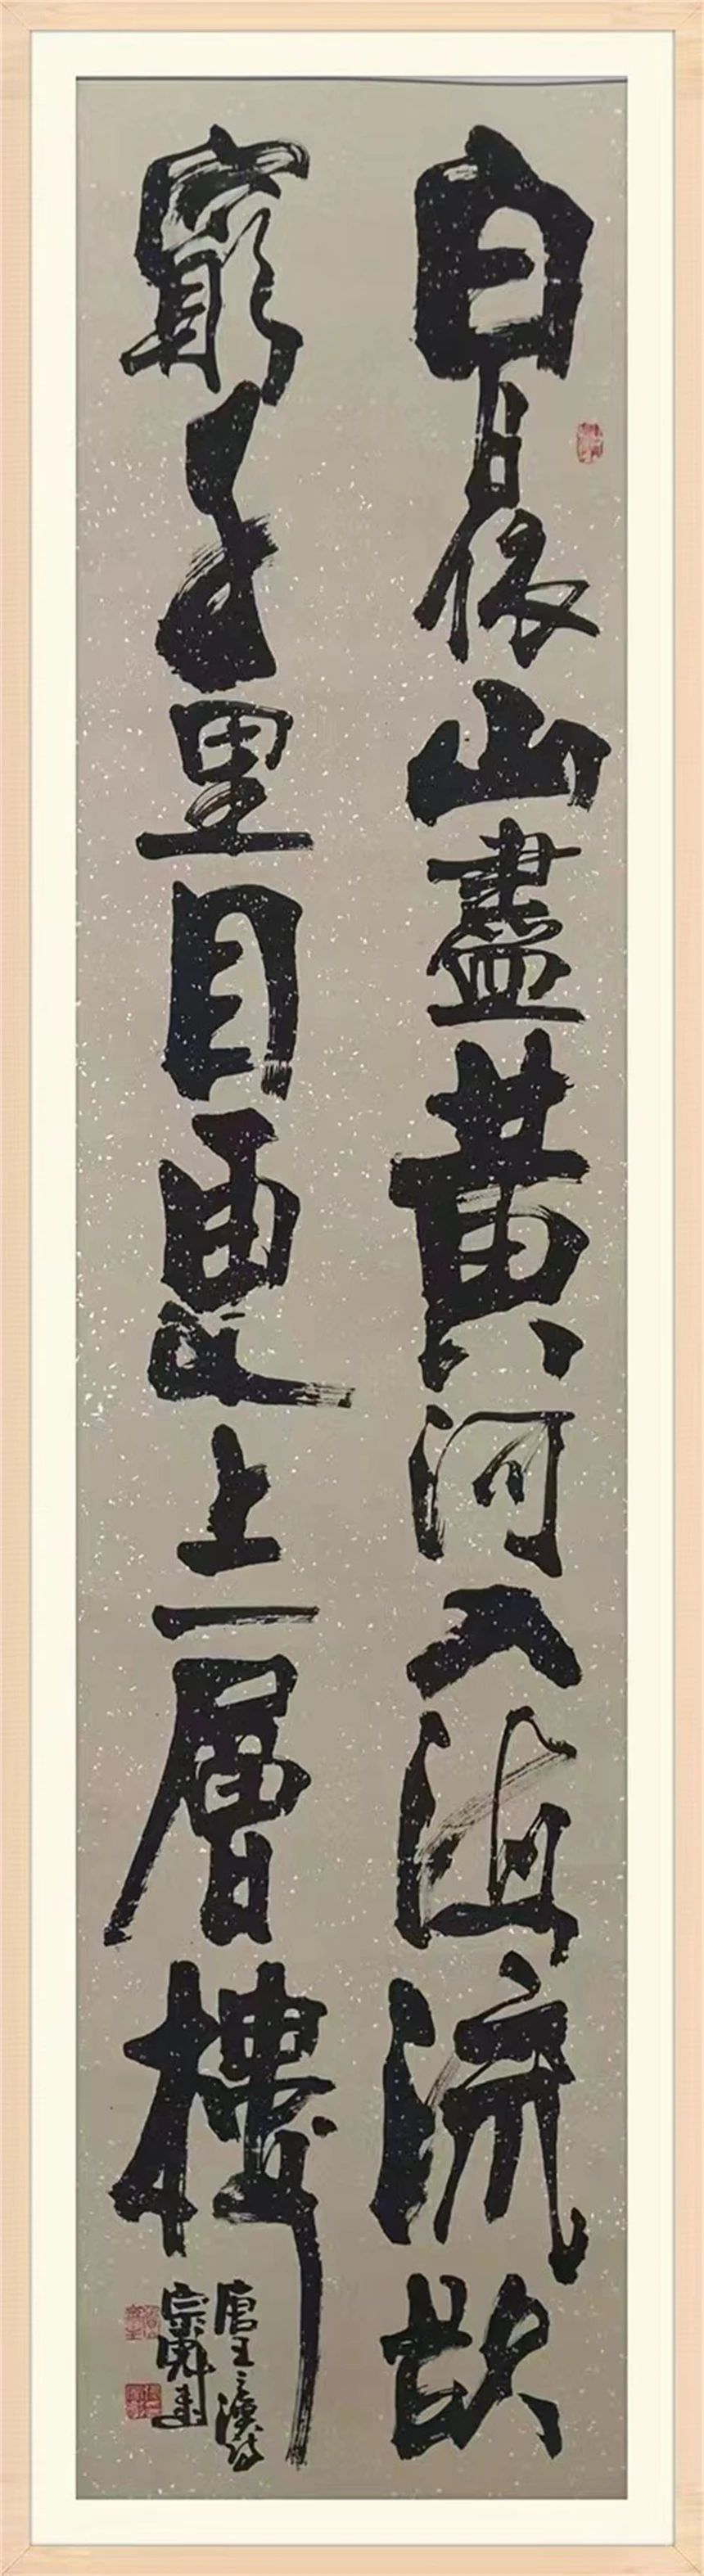 白日依山盡黄河入海流欲
窮千里目更上一層樓
唐王之渙詩
宗書